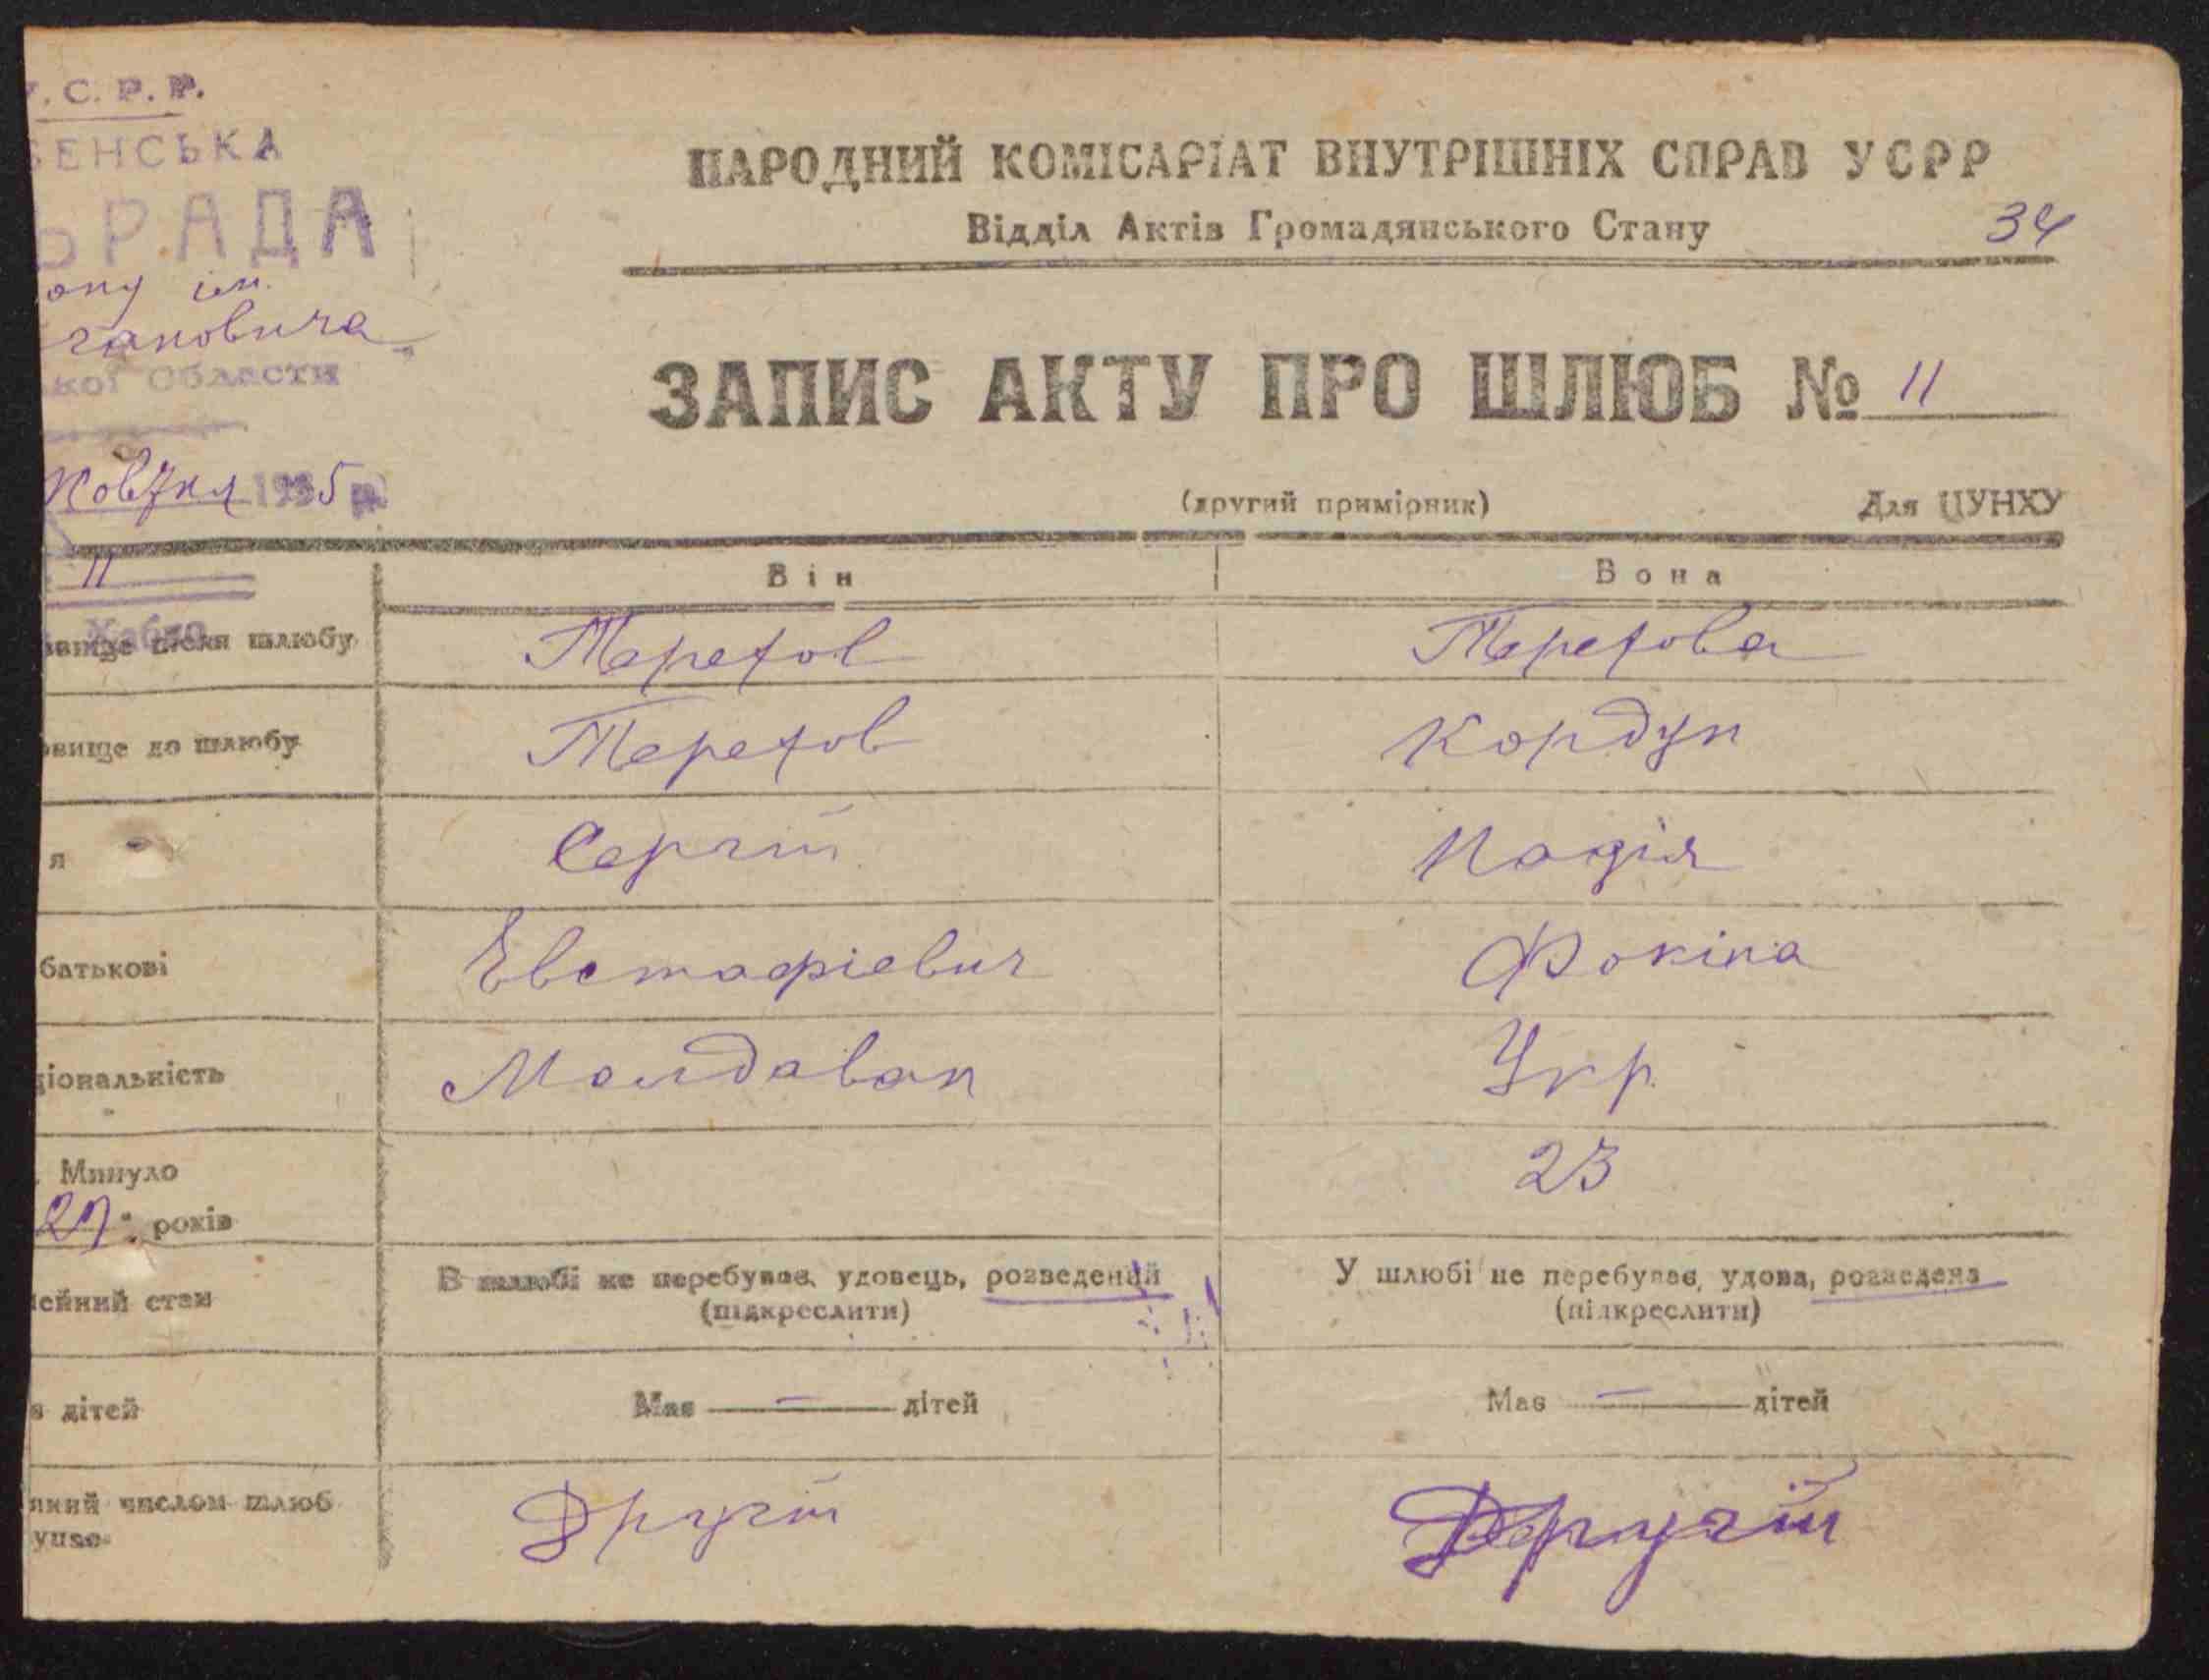 У.С.Р.Р.
БЕНСЬКА
ЬРАДА
ону ім.
гановича
кої Области
Жовтня 1935 р.
11
Жабк
НАРОДНИЙ КОМІСАРІАТ ВНУТРІШНІХ СПРАВ УСРР
Відділ Актів Громадянського Стану 34
ЗАПИС АКТУ ПРО ШЛЮБ № 11
(другий примірник) Для ЦУНХУ
Він Вона
звище після шлюбу Терехов Терехова
звище до шлюбу Терехов Кордун
я Сергій Надія
батькові Евстафіевич Фокіна
ціональність Молдаван Укр
Минуло
27 років 23
ейний стан В шлюбі не перебував, удовець, розведений У шлюбі не перебуває, удова, розведена
(підкреслити) (підкреслити)
в дітей Має — дітей Має — дітей
який числом шлюб Другій Другій
упає